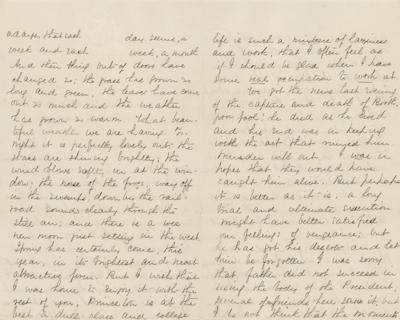 day seems, a
week and each week, a month
And then things out of doors have
changed so; the grass has grown so
long and green, the leaves have come
out so much and the weather
has grown so warm. What beau-
tiful weather we are having. To-
night it is perfectly lovely out: the
stars are shining brightly; the
wind blows softly in at the win-
dow; the noise of the frogs, way off
in the swamps, down by the rail-
road sounds clearly through the
still air; and there is a new
moon just setting in the west
Spring has certainly come, this
year, in its brightest and most
attractive form. But I wish that
I was home to enjoy it with the
rest of you. Princeton is at the
best a dull place and college
life is such a mixture of laziness
and work, that I often feel as
if I should be glad when I have
some real occupation to work at.
We got the news last evening
of the capture and death of Booth,
poor fool! he died as he lived
and his end was in keeping
with the act that ruined him
Murder will out. I was in
hopes that they would have
caught him alive. But perhaps
it is better as it is: a long
trial and ultimate execution
might have better satisfied
our feelings of vengeance; but
he has got his deserts and let
him be forgotten. I was sorry
that father did not succeed in
seeing the body of the President;
several of friends here saw it, but
I do not think that the moments